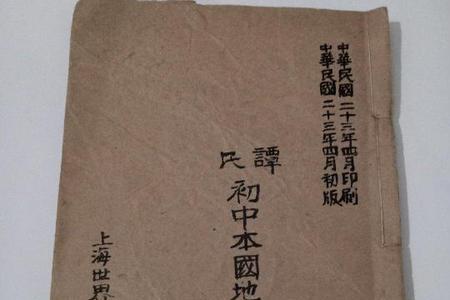 中華民國二十三年四月印刷
中華民國二十三年四月初版
譚氏
初中本國地
上海世界